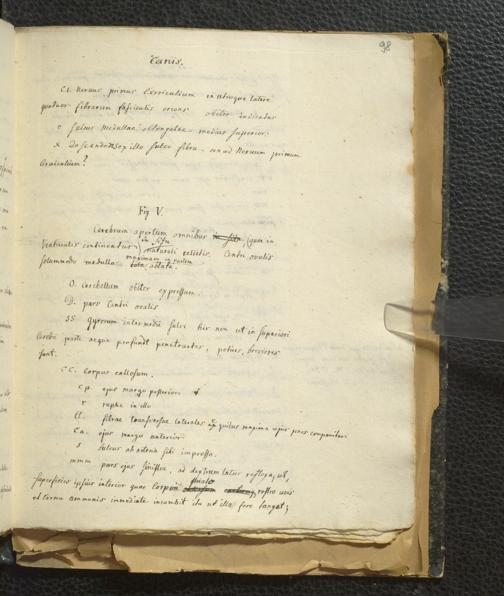 98
Canis.
C1. Nervus primus Cervicalium in utroque latere
quatuor fibrarum fasciculis oriens obiter indicatur
v sulcus medullae oblongatae medius superior.
x Descendens ex illo sulco fibra an ad Nervum primum
Cervicalium?
Fig V.
Cerebrum apertum omnibus in situ (quae in
Ventriculis continentur) in situ naturali relictis. Centri ovalis
solummodo medulla maximam partem ablata.
O. Cerebellum obiter expressum.
D. pars Centri ovalis
SS gyrorum intermedii sulci hic non ut in superiori
Cerebri parte aeque profunde penetrantes, potius breviores
sunt.
CC. Corpus callosum.
cp. ejus margo posterior
r raphe in illo
tt. fibrae transversae laterales ex quibus maxima ejus pars componitur
ca. ejus margo anterior
s sulcus ab adena sibi impressa.
mmm pars ejus sinistra, ad dextrum latus reflexa, ut,
superficies ipsius interior quae
et Cornu ammonis immediate incumbit ita ut illa fere tangat;